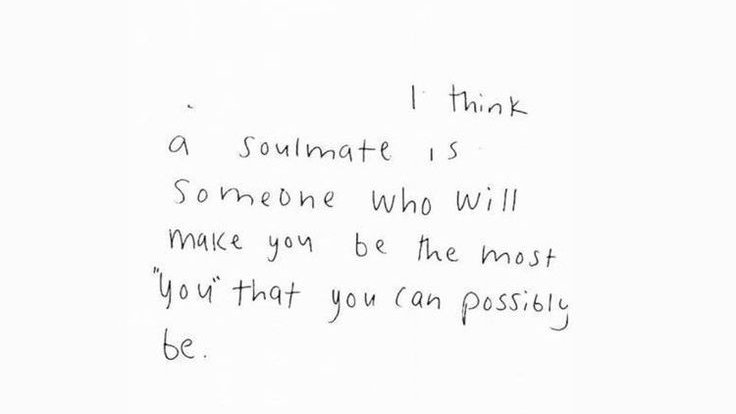 I think
a soulmate is
someone who will
make you be the most
"you" that you can possibly
be.